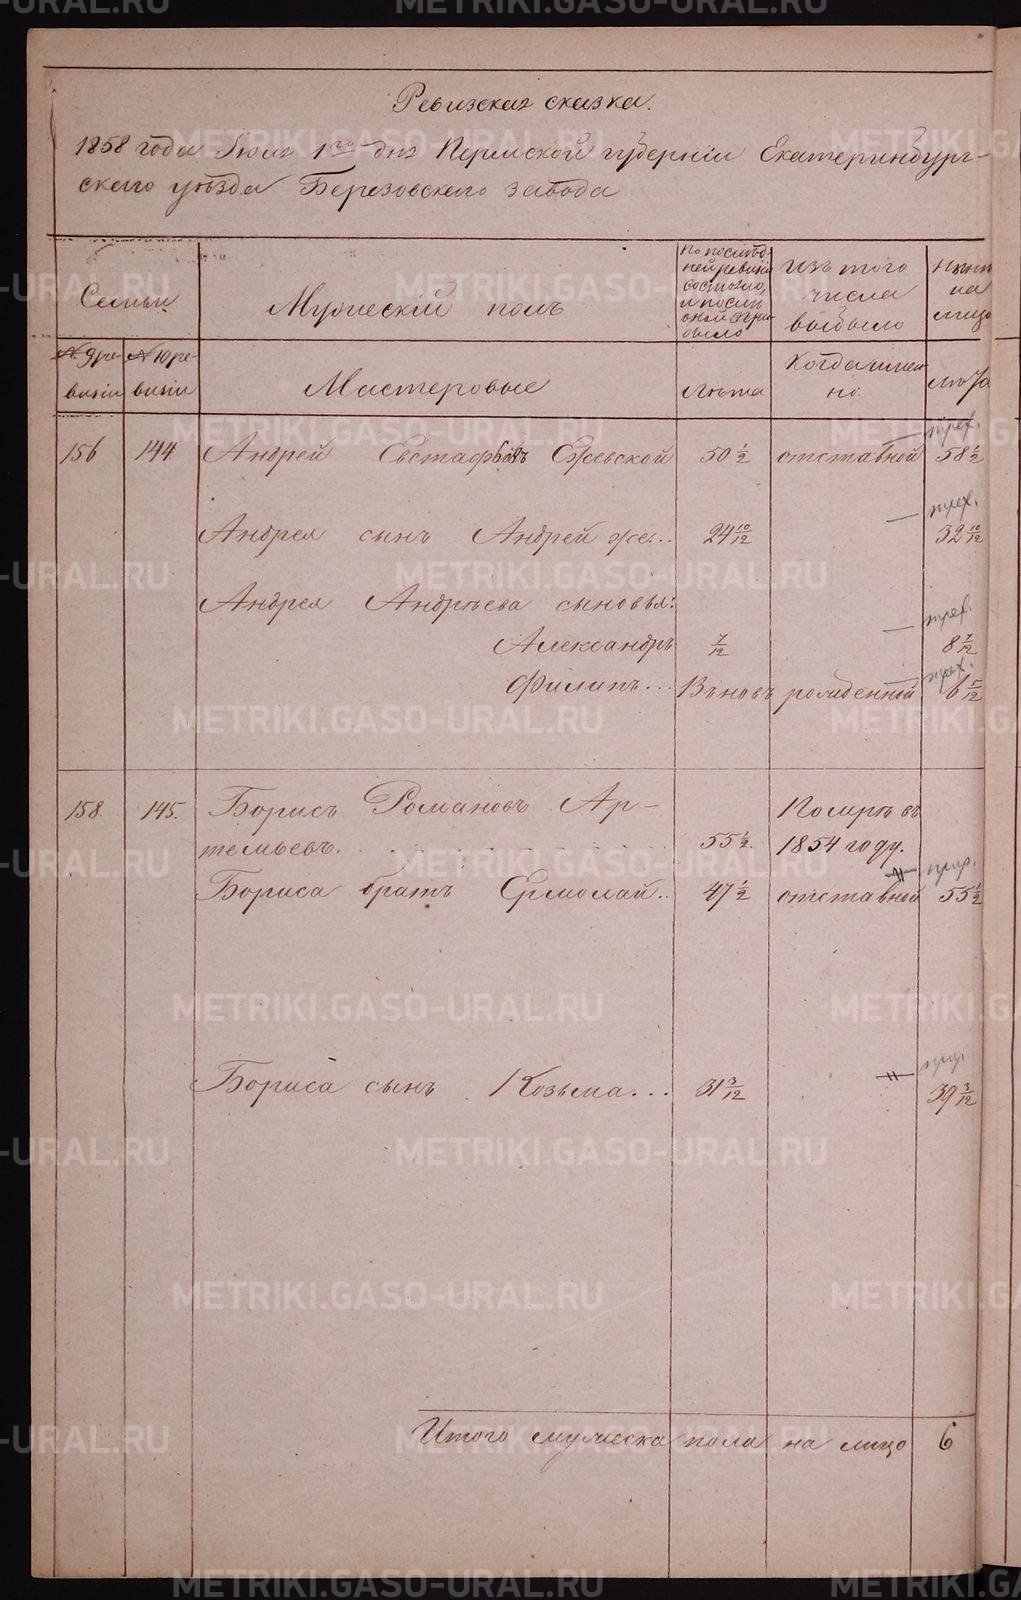 Ревизская сказка.
1858 года Июня 1го дня Пермской губерніи Екатеринбург-
скаго уѣзда Березовскаго завода
Семьи
Мужескій полъ
По послѣд-
ней ревизіи
состояло,
и послѣ
оной при-
было
Изъ того
числа
выбыло
Нынѣ
на
лицо
№ 9 ре-
визіи
№ 10 ре-
визіи
Мастеровые
Лѣта
Когда имен-
но.
Лѣта
156 144 Андрей Евстафьевъ Ежевской 50 1/2 отставной 58 1/2
Андрея сынъ Андрей же... 24 10/12 32 10/12
Андрея Андрѣева сыновья:
Александръ 7/12 8 7/12
Филипъ... Вновь рожденный 6 5/12
158. 145. Борисъ Романовъ Ар-
темьевъ. 55 1/2 Помре въ
1854 году.
Бориса братъ Ермолай.. 47 1/2 отставной 55 1/2
Бориса сынъ Козьма... 31 3/12 39 3/12
Итого мужеска пола на лицо 6
METRIKI.GASO-URAL.RU